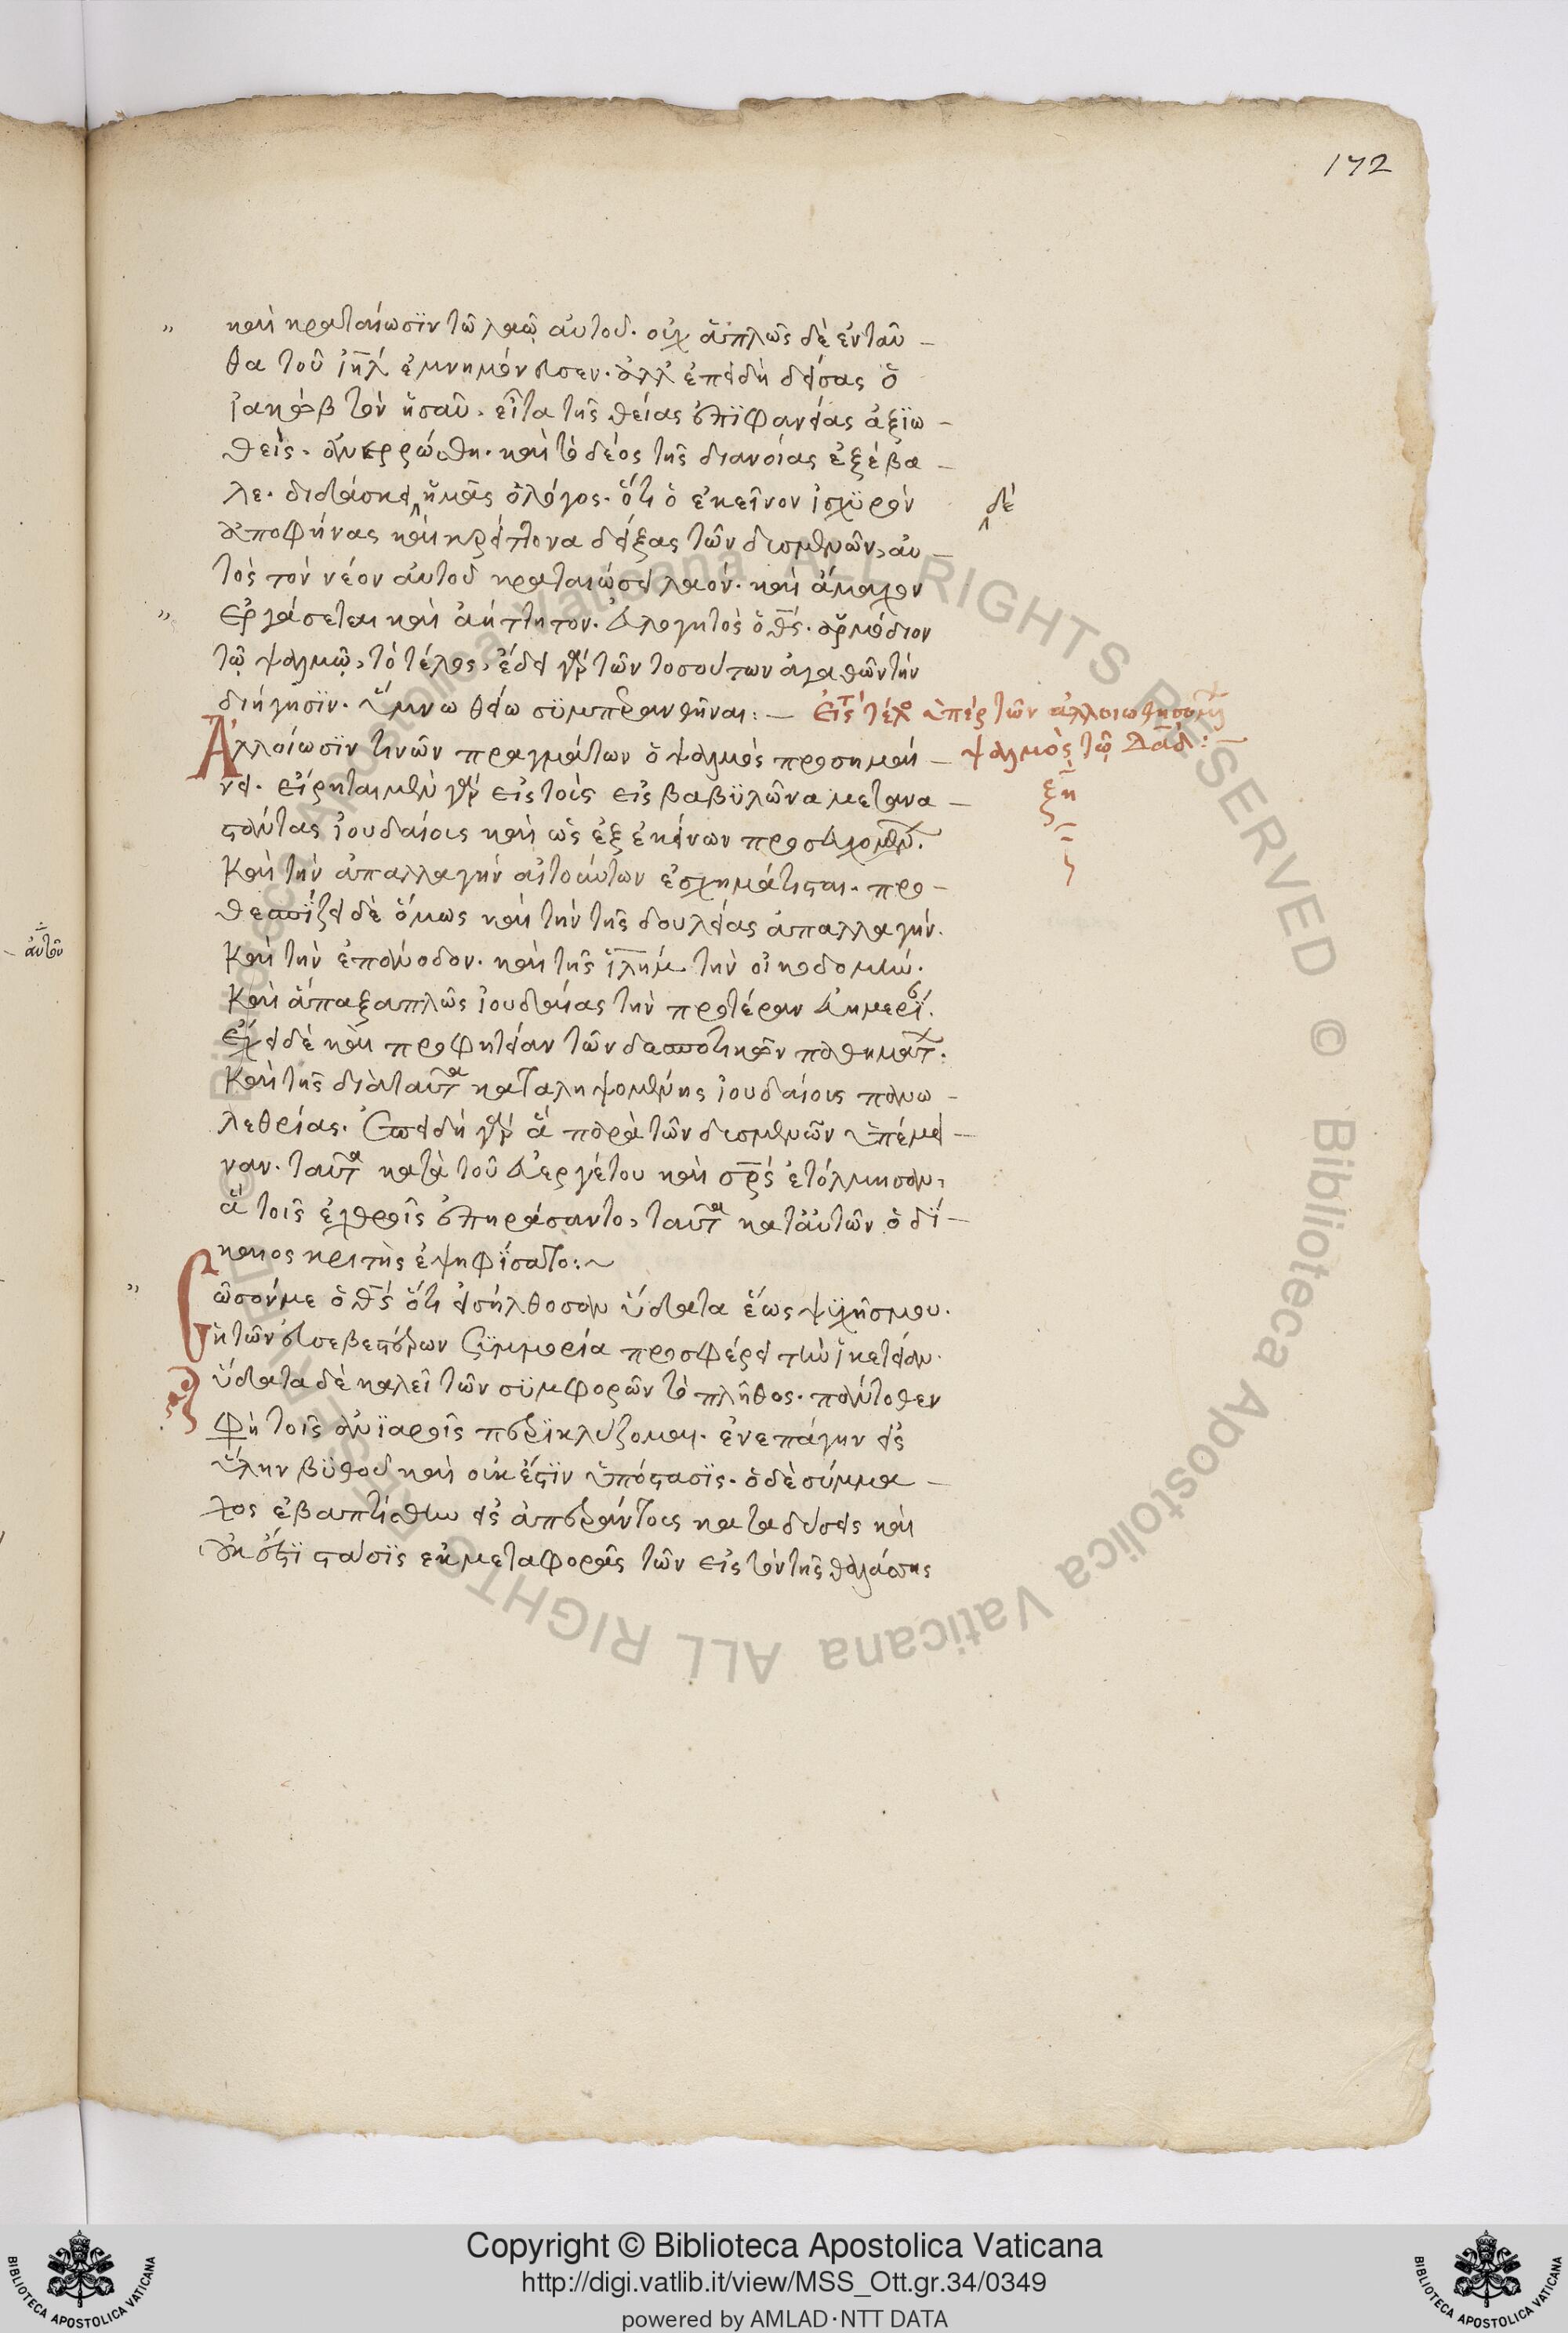 172
καὶ κραταίωσϊν τῶ λαῶ αὐτοῦ. οὐχ ἁπλῶς δὲ ἐνταῦ –
θα τοῦ ἰῆλ ἐμνημόνευσεν. ἀλλ' ἐπειδὴ δείσας ὁ
ἰακὼβ τὸν ἡσαῦ. εἶτα τῆς θείας ἐπϊφανείας ἀξϊω –
θεὶς. ἀνερρώσθη. καὶ τὸ δέος τῆς διανοίας ἐξέβα –
λε. διδάσκει ἡμᾶς ὁ λόγος. ὅτι ὁ ἐκεῖνον ἰσχϋρὸν
δὲ
ἀποφήνας καὶ κρείττονα δείξας τῶν δυσμενῶν, αὐ –
τὸς τὸν νέον αὐτοῦ κραταιώσει λαόν. καὶ ἄμαχον
ἐργάσεται καὶ ἀήττητον. εὐλογητὸς ὁ θς. ἁρμόδιον
τῷ ψαλμῷ, τὸ τέλος, ἔδει γὰρ τῶν τοσούτων ἀγαθῶν τὴν
διήγησϊν. ὕμνω θείω συμπερανθῆναι: –
εἰς τὸ τέλος ὑπὲρ τῶν ἀλλοιωθησομένων
ψαλμὸς τῷ Δαδ: –
ξη
Ἀλλοίωσϊν τινῶν πραγμάτων ὁ ψαλμὸς προσημαί –
νει. εἴρηται μὲν γὰρ εἰς τοὺς εἰς βαβϋλῶνα μετανα –
στάντας ἰουδαίοις καὶ ὡς ἐξ ἐκείνων προσευχομένων.
καὶ τὴν ἀπαλλαγὴν αἰτούντων ἐσχημάτισται. προ –
θεσπίζει δὲ ὅμως καὶ τὴν τῆς δουλείας ἀπαλλαγήν.
καὶ τὴν ἐπάνοδον. καὶ τῆς ἱλημ τὴν οἰκοδομίαν.
καὶ ἁπαξαπλῶς ἰουδαίας τὴν προτέραν εὐημερίαν.
ἔχει δὲ καὶ προφητείαν τῶν δεσποτικῶν παθημάτων.
καὶ τῆς διὰ ταῦτα καταληψομένης ἰουδαίους πανω –
λεθρίας. ἐπειδὴ γὰρ ἃ παρὰ τῶν δυσμενῶν ὑπέμει –
ναν. ταῦτα κατὰ τοῦ εὐεργέτου καὶ σρς ἐτόλμησαν,
ἃ τοῖς ἐχθροῖς ἐπηράσαντο, ταῦτα κατ' αὐτῶν ὁ δί –
καιος κριτὴς ἐψηφίσατο: ~
Σῶσόν με ὁ θς ὅτι εἰσήλθοσαν ὕδατα ἕως ψϋχῆς μου.
ἡ τῶν εὐσεβεστέρων συμμορία προσφέρει τὴν ἱκετείαν.
ὕδατα δὲ καλεῖ τῶν συμφορῶν τὸ πλῆθος. πάντοθεν
φη τοῖς ἀνϊαροῖς περϊκλύζομαι. ἐνεπάγην εἰς
ὕλην βϋθοῦ καὶ οὐκ ἔστϊν ὑπόστασϊς. ὁ δὲ σύμμα –
χος ἐβαπτίσθην εἰς ἀπεράντους καταδύσεις καὶ
οὐκ ἔστϊ στάσϊς ἐκ μεταφορᾶς τῶν εἰς τὸν τῆς θαλάσσης
αὐτοῦ
Copyright © Biblioteca Apostolica Vaticana
http://digi.vatlib.it/view/MSS_Ott.gr.34/0349
powered by AMLAD·NTT DATA
BIBLIOTECA APOSTOLICA VATICANA
BIBLIOTECA APOSTOLICA VATICANA
© Biblioteca Apostolica Vaticana ALL RIGHTS RESERVED © Biblioteca Apostolica Vaticana ALL RIGHTS RESERVED